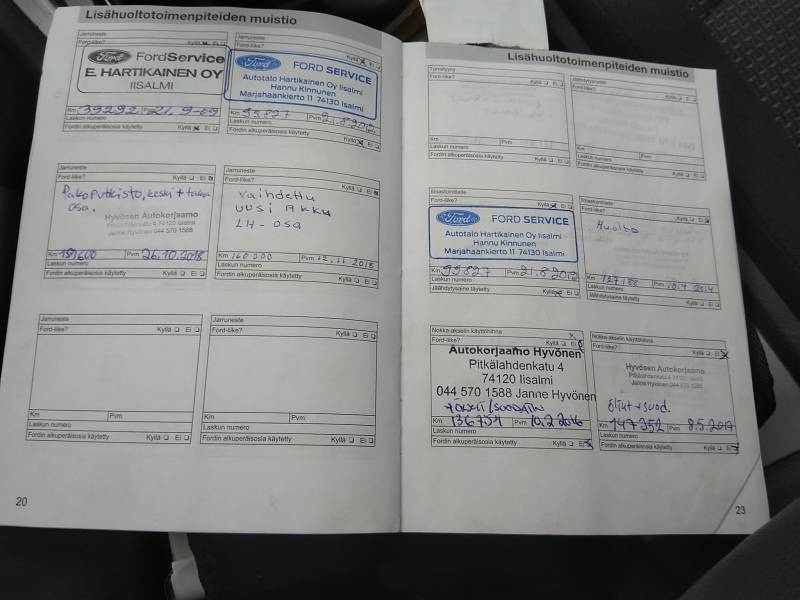 Lisähuoltotoimenpiteiden muistio
Jarruneste
Ford-liike? Kyllä Ei
Ford FordService
E. HARTIKAINEN OY
IISALMI
Km 39292 Pvm 21.9-09
Laskun numero
Fordin alkuperäisosia käytetty Kyllä Ei
Jarruneste
Ford-liike? Kyllä Ei
Ford FORD SERVICE
Autotalo Hartikainen Oy Iisalmi
Hannu Kinnunen
Marjahaankierto 11 74130 Iisalmi
Km 99827 Pvm 21.8.2012
Laskun numero
Fordin alkuperäisosia käytetty Kyllä Ei
Jarruneste
Ford-liike? Kyllä Ei
Pakoputkisto, keski + taka
osa.
Hyvösen Autokorjaamo
Pitkälahdenkatu 4 74120 Iisalmi
Janne Hyvönen 044 570 1588
Km 159600 Pvm 26.10.2018
Laskun numero
Fordin alkuperäisosia käytetty Kyllä Ei
Jarruneste
Ford-liike? Kyllä Ei
vaihdettu
uusi AKKU
LH-osa
Km 160 000 Pvm 12.11 2018
Laskun numero
Fordin alkuperäisosia käytetty Kyllä Ei
Jarruneste
Ford-liike? Kyllä Ei
Km Pvm
Laskun numero
Fordin alkuperäisosia käytetty Kyllä Ei
Jarruneste
Ford-liike? Kyllä Ei
Km Pvm
Laskun numero
Fordin alkuperäisosia käytetty Kyllä Ei
20
Lisähuoltotoimenpiteiden muistio
Turvatyyny
Ford-liike? Kyllä Ei
Km Pvm
Laskun numero
Fordin alkuperäisosia käytetty Kyllä Ei
Jäähdytysneste
Ford-liike? Kyllä Ei
Km Pvm
Laskun numero
Fordin alkuperäisosia käytetty Kyllä Ei
Ilmastointilaite
Ford-liike? Kyllä Ei
Ford FORD SERVICE
Autotalo Hartikainen Oy Iisalmi
Hannu Kinnunen
Marjahaankierto 11 74130 Iisalmi
Km 99827 Pvm 21.8.2012
Laskun numero
Jäähdytysaine täytetty Kyllä Ei
Ilmastointilaite
Ford-liike? Kyllä Ei
Huolto
Km 127188 Pvm 10.4 2014
Laskun numero
Jäähdytysaine täytetty Kyllä Ei
Nokka-akselin käyttöhihna
Ford-liike? Kyllä Ei
Autokorjaamo Hyvönen
Pitkälahdenkatu 4
74120 Iisalmi
044 570 1588 Janne Hyvönen
Km 136754 Pvm 10.2 2016
Laskun numero
Fordin alkuperäisosia käytetty Kyllä Ei
Nokka-akselin käyttöhihna
Ford-liike? Kyllä Ei
Hyvösen Autokorjaamo
Pitkälahdenkatu 4, 74120 Iisalmi
Janne Hyvönen 044 570 1588
öljyt + suod.
Km 147352 Pvm 8.5.2017
Laskun numero
Fordin alkuperäisosia käytetty Kyllä Ei
23